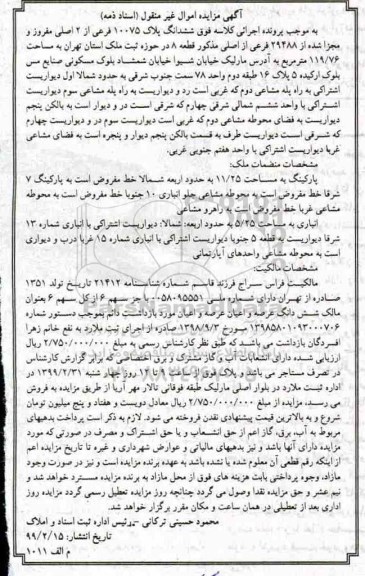 آگهی مزایده اموال غیر منقول (اسناد ذمه)
به موجب پرونده اجرائی کلاسه فوق ششدانگ پلاک ۱۰۰۷۵ فرعی از ۲ اصلی مفروز و
مجزا شده از ۲۹۴۸۸ فرعی از اصلی مذکور قطعه ۸ در حوزه ثبت ملک استان تهران به مساحت
۱۱۹/۷۶ مترمربع به آدرس مارلیک خیابان شیوا خیابان شمشاد بلوک مسکونی صنایع مس
بلوک ارکیده ۵ پلاک ۱۶ طبقه دوم واحد ۷۸ سمت جنوب شرقی به حدود شمالا اول دیواریست
اشتراکی به راه پله مشاعی دوم که غربی است رد و دیواریست به راه پله مشاعی سوم دیواریست
اشتراکی با واحد ششم شمالی شرقی چهارم که شرقی است در و دیوار است به بالکن پنجم
دیواریست به فضای محوطه مشاعی دوم که غربی است دیواریست سوم در و دیواریست چهارم
که شرقی است دیواریست طرف به قسمت بالکن پنجم دیوار و پنجره است به فضای مشاعی
غربا دیواریست اشتراکی با واحد هفتم جنوبی غربی.
مشخصات منضمات ملک:
پارکینگ به مساحت ۱۱/۲۵ به حدود اربعه شمالا خط مفروض است به پارکینگ ۷
شرقا خط مفروض است به محوطه مشاعی جلو انباری ۱۰ جنوبا خط مفروض است به محوطه
مشاعی غربا خط مفروض است به راهرو مشاعی
انباری به مساحت ۵/۲۵ به حدود اربعه: شمالا: دیواریست اشتراکی با انباری شماره ۱۳
شرقا دیواریست به قطعه ۵ جنوبا دیواریست اشتراکی با انباری شماره ۱۵ غربا درب و دیواری
است به محوطه مشاعی واحدهای آپارتمانی
مشخصات مالکیت:
مالکیت فراس سراج فرزند قاسم شماره شناسنامه ۲۱۴۱۲ تاریخ تولد ۱۳۵۱
صادره از تهران دارای شماره ملی ۰۰۵۸۰۹۵۵۵۱ با جز سهم ۶ از کل سهم ۶ بعنوان
مالک شش دانگ عرصه و اعیان عرصه و اعیان مورد بازداشت دائم بموجب دستور شماره
۱۳۹۸۵۸۰۱۰۹۳۰۰۰۷۰۶ مورخ ۱۳۹۸/۹/۳ صادره از اجرای ثبت ملارد به نفع خانم زهرا
افسردگان بازداشت می باشد که طبق نظر کارشناس رسمی به مبلغ ۲/۷۵۰/۰۰۰/۰۰۰ ریال
ارزیابی شده دارای انتعابات آب و گاز مشترک و برق اختصاصی که برابر گزارش کارشناس
در تصرف مستاجر می باشد و پلاک فوق از ساعت ۹ تا ۱۲ روز چهار شنبه ۱۳۹۹/۲/۳۱ در
اداره ثبت ملارد در بلوار اصلی مارلیک طبقه فوقانی تالار مهر آریا از طریق مزایده به فروش
می رسد، مزایده از مبلغ ۲/۷۵۰/۰۰۰/۰۰۰ ریال معادل دویست و هفتاد و پنج میلیون تومان
شروع و به بالاترین قیمت پیشنهادی نقدن فروخته می شود. لازم به ذکر است پرداخت بدهیهای
مربوط به آب، برق، گاز اعم از حق انشعاب و یا حق اشتراک و مصرف در صورتی که مورد
مزایده دارای آنها باشد و نیز بدهیهای مالیاتی و عوارض شهرداری و غیره تا تاریخ مزایده اعم
از اینکه رقم قطعی آن معلوم شده یا نشده باشد به عهده برنده مزایده است و نیز در صورت وجود
مازاد، وجوه پرداختی بابت هزینه های فوق از محل مازاد به برنده مزایده مسترد خواهد شد و
نیم عشر و حق مزایده نقدا وصول می گردد چنانچه روز مزایده تعطیل رسمی گردد مزایده روز
اداری بعد از تعطیلی در همان ساعت و مکان مقرر برگزار خواهد شد.
محمود حسینی ترکانی -رئیس اداره ثبت اسناد و املاک
تاریخ انتشار: ۹۹/۲/۱۵
م الف ۱۰۱۱